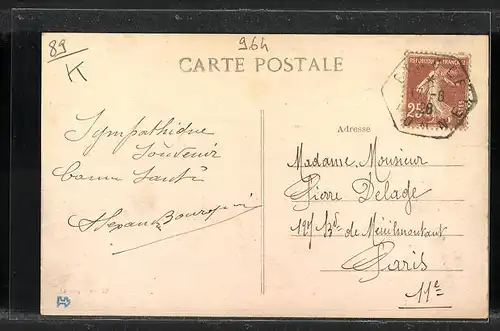 89
964
K
CARTE POSTALE
RÉPUBLIQUE FRANÇAISE
25
Sympathique
Souvenir
Bonne Santé
Adresse
Madame, Monsieur
Pierre Delage
127 Bd. de Ménilmontant
Paris
11e